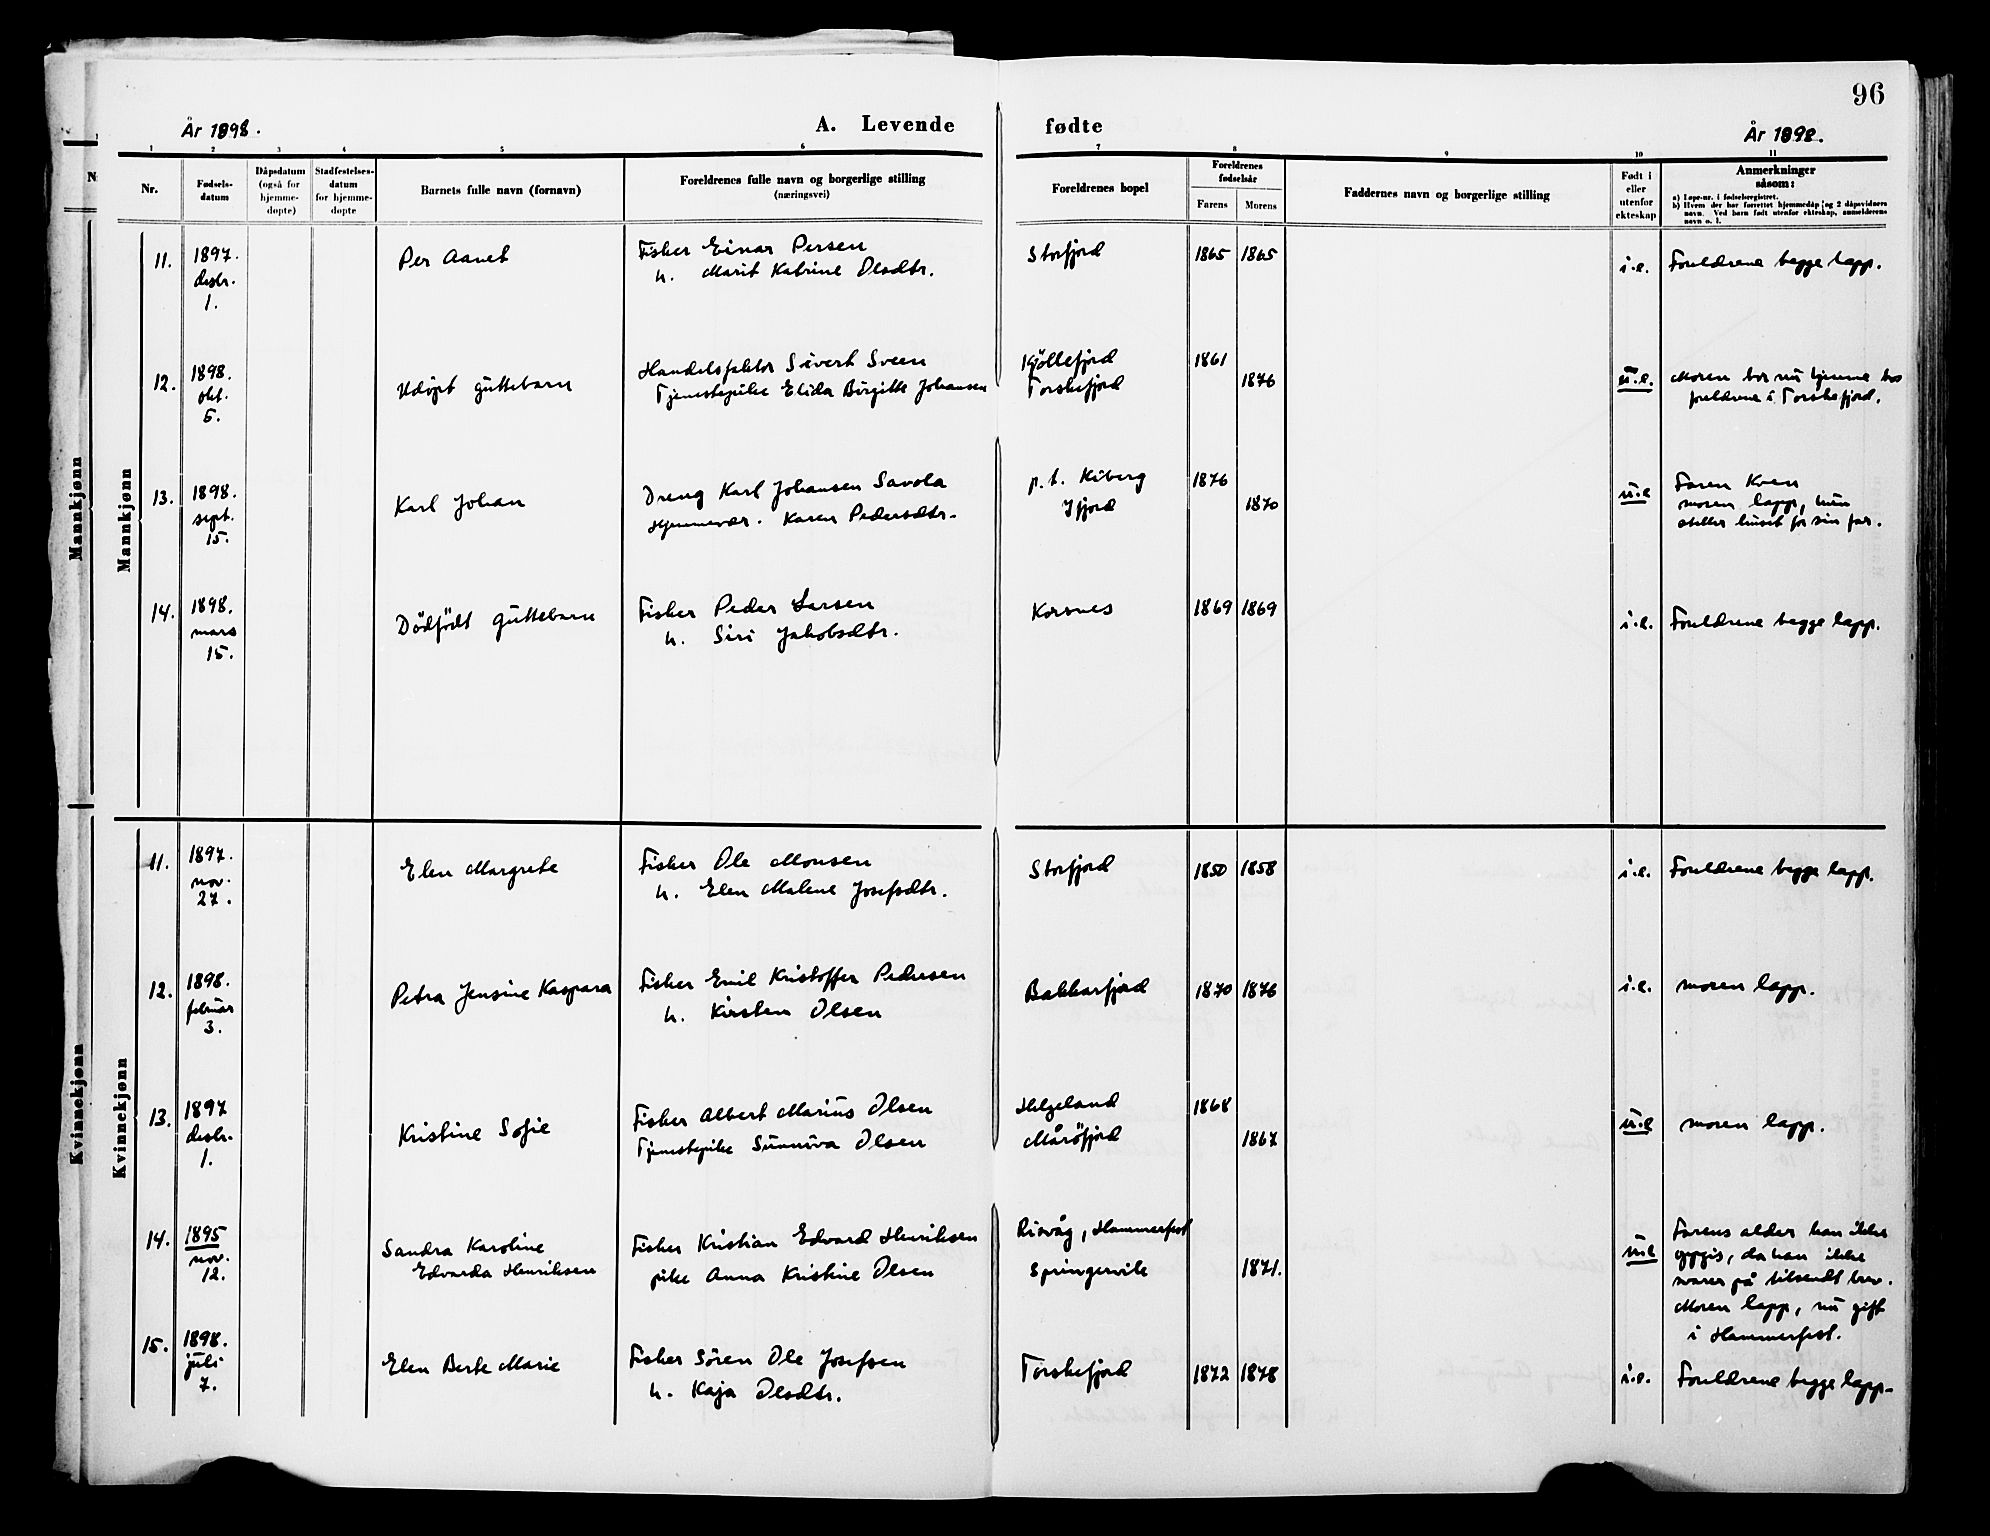 96
År 1898.
A. Levende fødte
År 1898.
1 2 3 4 5 6 7 8 9 10 11
Nr.
Fødsels-
datum
Dåpsdatum
(også for
hjemme-
døpte)
Stadfestelses-
datum
for hjemme-
døpte
Barnets fulle navn (fornavn)
Foreldrenes fulle navn og borgerlige stilling
(næringsvei)
Foreldrenes bopel
Foreldrenes
fødselsår
Farens Morens
Faddernes navn og borgerlige stilling
Født i
eller
utenfor
ekteskap
Anmerkninger
såsom:
a) Løpe-nr. i fødselsregistret.
b) Hvem der har forrettet hjemmedåp og 2 dåpsvidners
navn. Ved barn født utenfor ekteskap, anmelderens
navn o. l.
N
Mannkjønn
Mannkjønn
11. 1897. Per Aanet Fisker Einar Persen Storfjord 1865 1865 i.e. Foreldrene begge lapp.
desbr. h. Marit Katrine Olsdtr.
1.
12. 1898. Udöpt guttebarn Handelsfaktor Sivert Sveen Kjöllefjord 1861 u.e. Moren bor nu hjemme hos
okt. Tjenestepike Elida Birgitte Johansen Torskefjord 1876 foreldrene i Torskefjord.
6.
13. 1898. Karl Johan Dreng Karl Johansen Savola p.t. Kiberg 1876 u.e Faren Kven
sept. Hjemmevær. Karen Pedersdtr. Ifjord 1870 moren lapp, hun
15. steller huset for sin far.
14. 1898. Dödfödt guttebarn Fisker Peder Larsen Korsnes 1869 1869 i.e. Foreldrene begge lapp.
mars h. Siri Jakobsdtr.
15.
Kvinnekjønn
Kvinnekjønn
11. 1897. Elen Margrete Fisker Ole Monsen Storfjord 1850 1858 i.e. Foreldrene begge lapp.
nov. h. Elen Malene Josefsdtr.
27.
12. 1898. Petra Jensine Kaspara Fisker Emil Kristoffer Pedersen Bakkarfjord 1870 1876 i.e. moren lapp.
februar h. Kirsten Olsen
3.
13. 1897 Kristine Sofie Fisker Albert Marius Olsen Helgeland 1868 u.e moren lapp.
desbr. Tjenestepike Sunniva Olsen Måröfjord 1867
1.
14. 1895 Sandra Karoline Fisker Kristian Edvard Henriksen Risvåg, Hammerfest u.e Farens alder kan ikke
nov. Edvarda Henriksen pike Anna Kristine Olsen Springervik 1871. opgis, da han ikke
12. svarer på tilsendt brev.
Moren lapp, nu gift
i Hammerfest.
15. 1898. Elen Berte Marie Fisker Sören Ole Josefsen Torskefjord 1872 1878 i.e. Foreldrene begge lapp.
juli h. Kaja Olsdtr.
7.